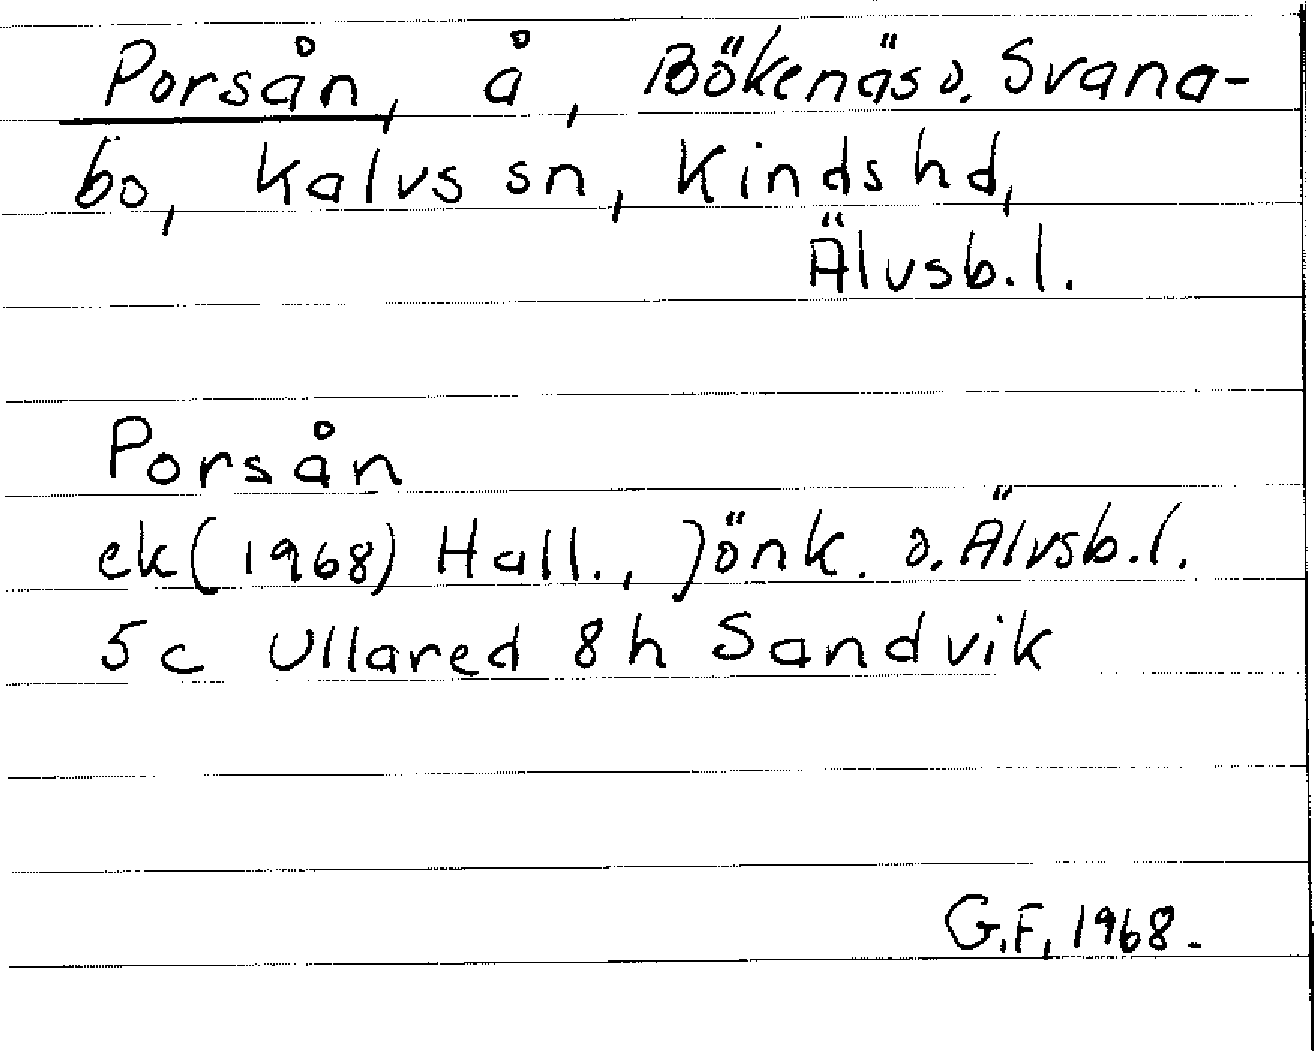 Porsån, å, Bökenäs o. Svana-
bo, Kalvs sn, Kinds hd,
Älvsb.l.
Porsån
ek (1968) Hall., Jönk. o. Älvsb.l.
5c Ullared 8h Sandvik
G.F, 1968.